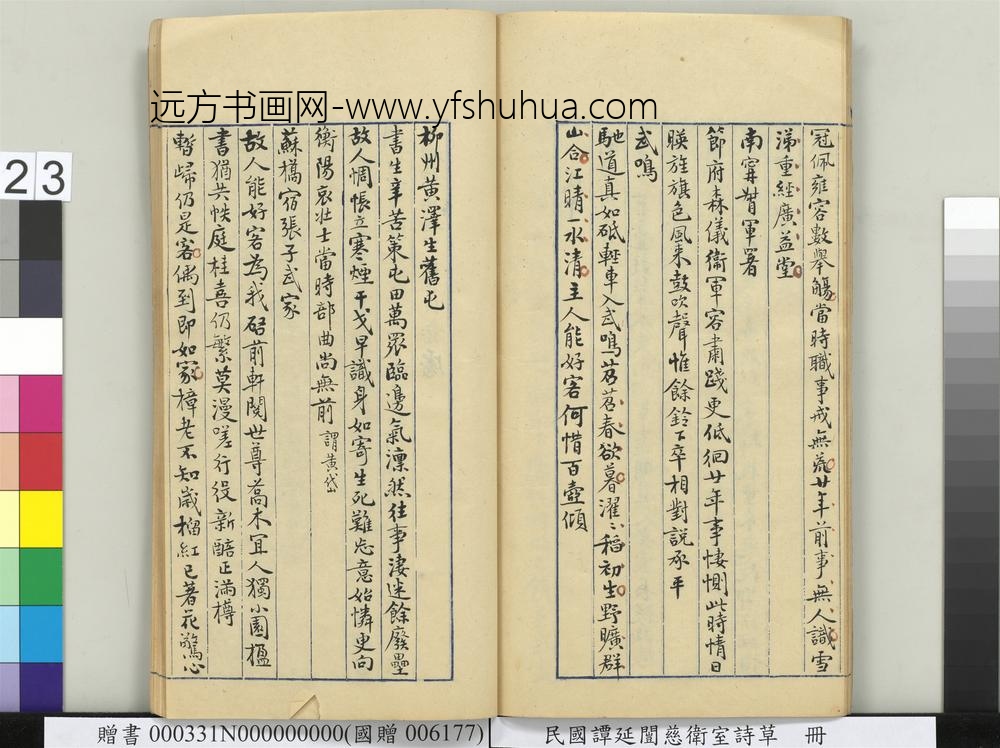 远方书画网-www.yfshuhua.com
冠佩雍容數舉觴當時職事戒無荒廿年前事無人識雪
涕重經廣益堂
南甯督軍署
節府森儀衛軍容肅踐更低徊廿年事悽惻此時情日
暎旌旗色風來鼓吹聲惟餘鈴下卒相對説承平
武鳴
馳道真如砥輕車入武鳴苕苕春欲暮濯〻稻初生野曠群
山合江晴一水清主人能好客何惜百壺傾
柳州黃澤生舊屯
書生辛苦策屯田萬眾臨邊氣凜然往事淒迷餘廢壘
故人惆悵立寒煙干戈早識身如寄生死難忘意始憐更向
衡陽哀壯士當時部曲尚無前 謂黃岱
蘇橋宿張子武家
故人能好客為我啓前軒閱世尊喬木宜人獨小園楹
書猶共帙庭桂喜仍繁莫漫嗟行役新醅正滿樽
暫歸仍是客偶到即如家樟老不知歲榴紅已著花驚心
23
贈書 000331N000000000(國贈 006177)
民國譚延闓慈衛室詩草 冊